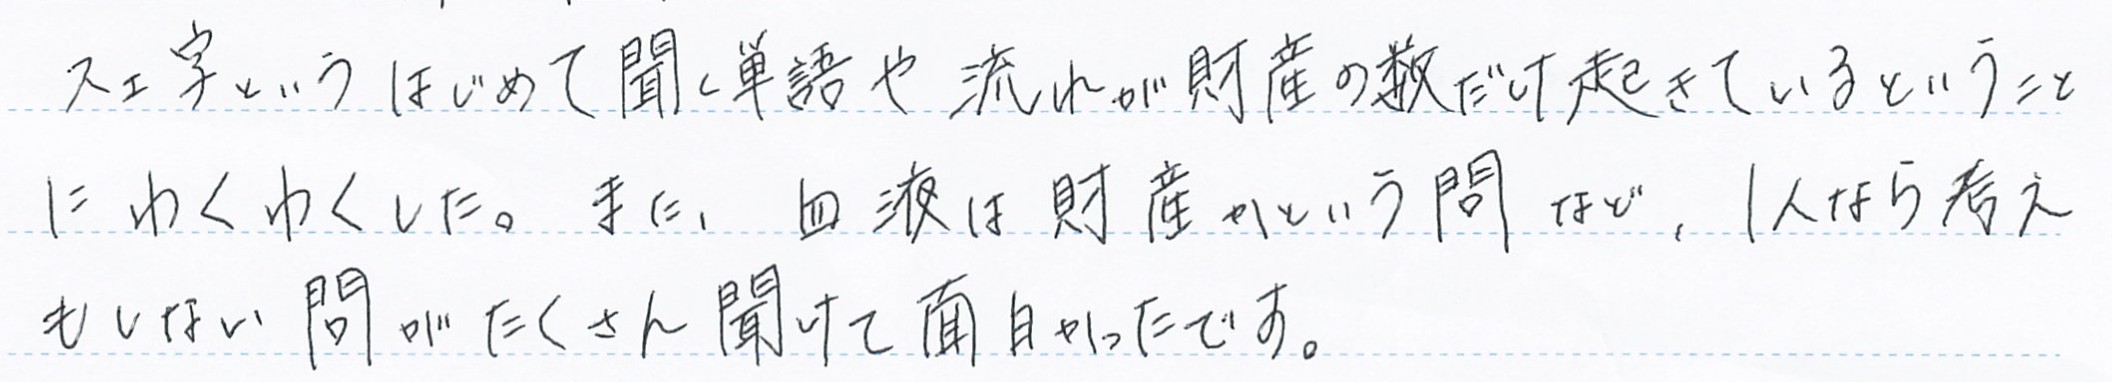 スエ字というはじめて聞く単語や流れが財産の数だけ起きているということ
にわくわくした。また、血液は財産かという問など、1人なら考え
もしない問がたくさん聞けて面白かったです。